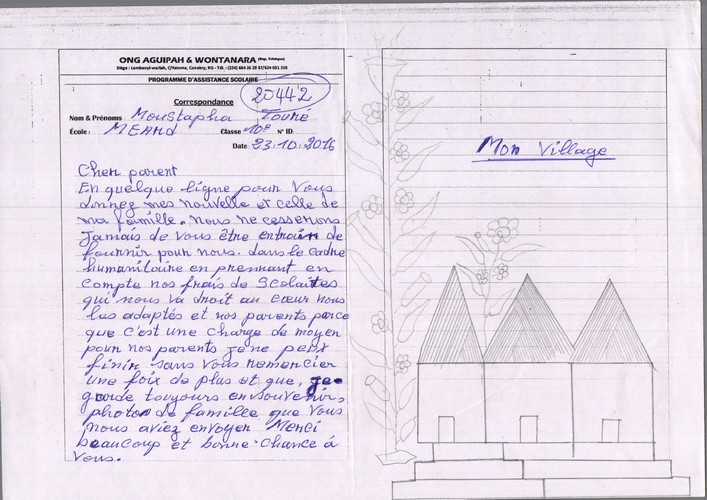 ONG AGUIPAH & WONTANARA (Rep. Tchèque)
Siège : Lambanyi-wariah, C/Ratoma, Conakry, RG - Tél. : (224) 664 26 29 37/624 691 338
PROGRAMME D'ASSISTANCE SCOLAIRE
Correspondance
20442
Nom & Prénoms : Moustapha Toure
École : MEAHD Classe 10e N° ID:
Date : 23.10.2016
Cher parent
En quelque ligne pour vous
donnez mes nouvelle et celle de
ma famille. Nous ne cesserons
Jamais de vous être entrain de
fournir pour nous. dans le cadre
humanitaire en prennant en
compte nos frais de Scolaites
qui nous va droit au cœur nous
les adaptés et nos parents parce
que c'est une charge de moyen
pour nos parents je ne peux
finir sans vous remercier
une foix de plus et que, je
garde toujours en souvenirs
photos de famille que vous
nous aviez envoyer Merci
beaucoup et bonne chance à
Vous.
Mon Village